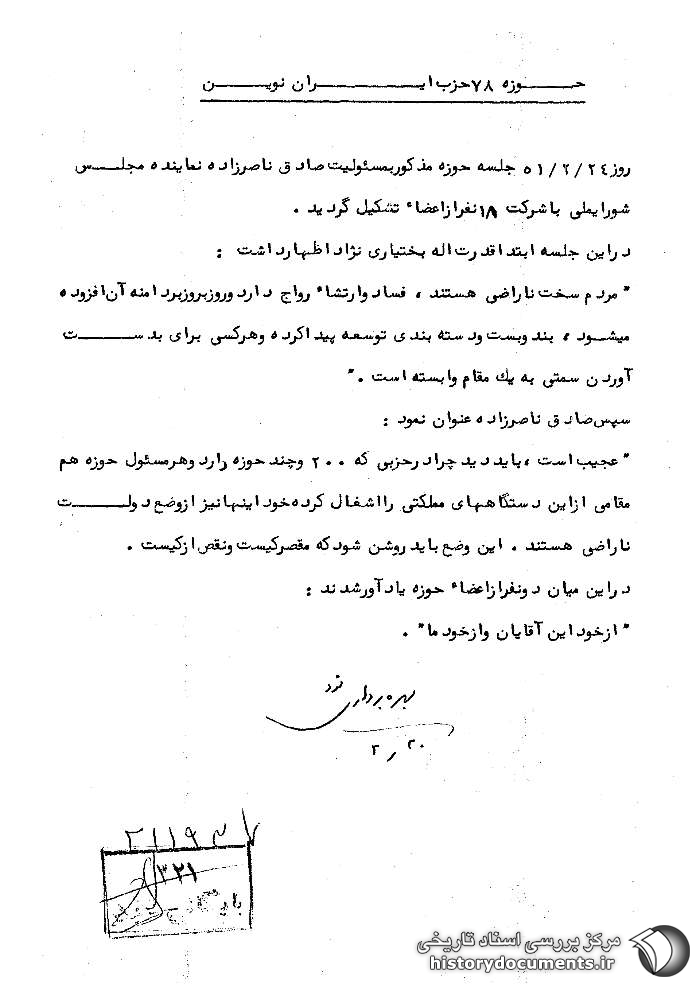 حوزه ۷۸ حزب ایران نوین
روز ۵۱/۲/۲۴ جلسه حوزه مذکور بمسئولیت صادق ناصرزاده نماینده مجلس
شورایملی با شرکت ۱۸ نفر از اعضاء تشکیل گردید .
در این جلسه ابتدا قدرت اله بختیاری نژاد اظهار داشت :
" مردم سخت ناراضی هستند ، فساد وارتشاء رواج دارد وروز بروز بر دامنه آن افزوده
میشود ، بند وبست ودسته بندی توسعه پیدا کرده وهرکسی برای بدست
آوردن سمتی به یك مقام وابسته است . "
سپس صادق ناصرزاده عنوان نمود :
" عجیب است ، باید دید چرا در حزبی که ۲۰۰ وچند حوزه دارد وهر مسئول حوزه هم
مقامی از این دستگاههای مملکتی را اشغال کرده خود اینها نیز از وضع دولت
ناراضی هستند . این وضع باید روشن شود که مقصر کیست ونقص از کیست .
در این میان دونفر از اعضاء حوزه یاد آور شدند :
" از خود این آقایان واز خود ما " .
بهره برداری شود
۲٫۳۰
۲۱۱۹۳۷
۳۲۱
مرکز بررسی اسناد تاریخی
historydocuments.ir